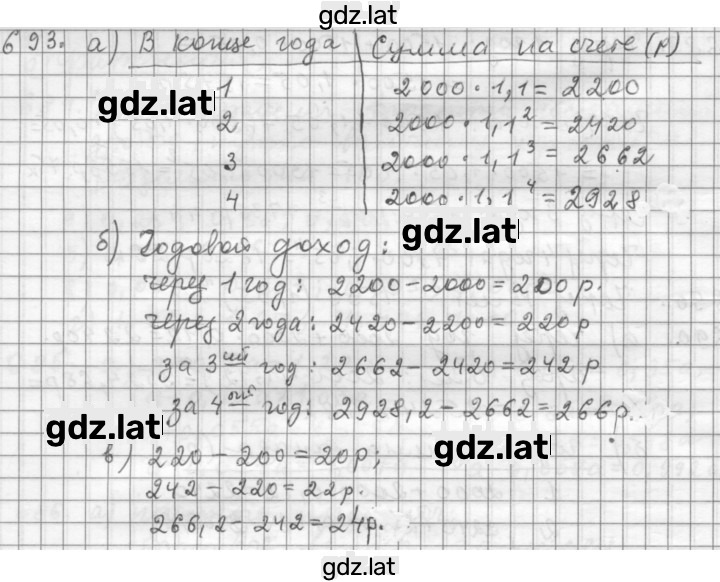 gdz.lat
693. а) В конце года | Сумма на счете (р)
1 | 2000 · 1,1 = 2200
gdz.lat
2 | 2000 · 1,1² = 2420
3 | 2000 · 1,1³ = 2662
4 | 2000 · 1,1⁴ = 2928
б) Годовой доход:
gdz.lat
через 1 год: 2200 – 2000 = 200 р.
через 2 года: 2420 – 2200 = 220 р
за 3ий год: 2662 – 2420 = 242 р
за 4ый год: 2928,2 – 2662 = 266 р.
gdz.lat
в) 220 – 200 = 20 р;
gdz.lat
242 – 220 = 22 р.
266,2 – 242 = 24 р.
gdz.lat